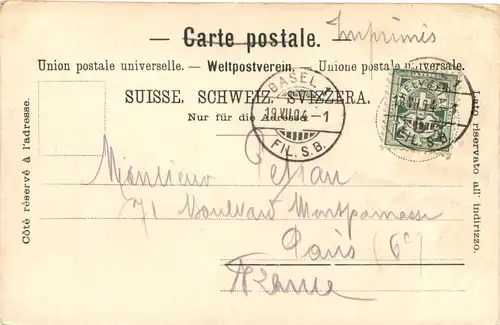 — Carte postale. —
Imprimés
Union postale universelle. — Weltpostverein. — Unione postale universale.
SUISSE. SCHWEIZ. SVIZZERA.
Nur für die Adresse
BASEL 1
19.VII.04–1
FIL.S.B.
19.VII.04–1
FIL.S.B.
Côté réservé à l'adresse.
Lato riservato all' indirizzo.
Monsieur
71 Boulevard Montparnasse
Paris (6e)
France